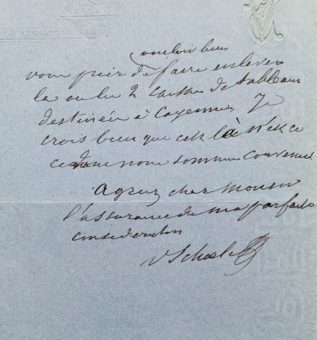 vouloir bien
vous prier de faire enlever
la ou les 2 caisses de tableaux
destinées à Cayenne. Je
crois bien que c'est là
ce dont nous sommes convenus
agréez cher Monsieur
l'assurance de ma parfaite
considération
V Schœlcher